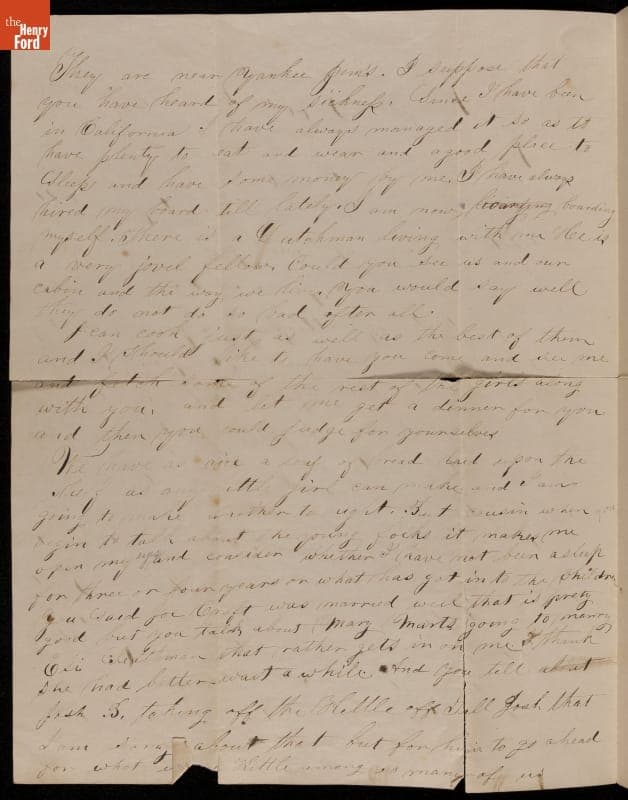 the
Henry
Ford
They are near Yankee Jims. I suppose that
you have heard of my sickness. Since I have been
in California I have always managed it so as to
have plenty to eat and wear and agood place to
Sleep and have some money by me. I have always
hired my board till lately. I am now boarding
myself. there is a Dutchman living with me He is
a very jovel fellow. Could you see us and our
cabin and the way we live. you would say well
they do not do so bad after all.
I can cook just as well as the best of them
and I should like to have you come and see me
and fetch some of the rest of the girls along
with you. and let me get a dinner for you
and then you could judge for yourselves
We have as nice a loaf of bread laid upon the
as any little girl can make and I am
going to make another to night. But cousin when you
begin to talk about the young folks it makes me
open my eyes and consider whether I have not been asleep
for three or four years or what has got in to the children
you said Joe Craft was married well that is prety
good but you talk about Mary going to marry
that rather gets in on me I think
she had better wait a while. And you tell about
Josh B. taking off the Kettle Tell Josh that
I am about that but for him to go ahead
for what Kettle among so many of us